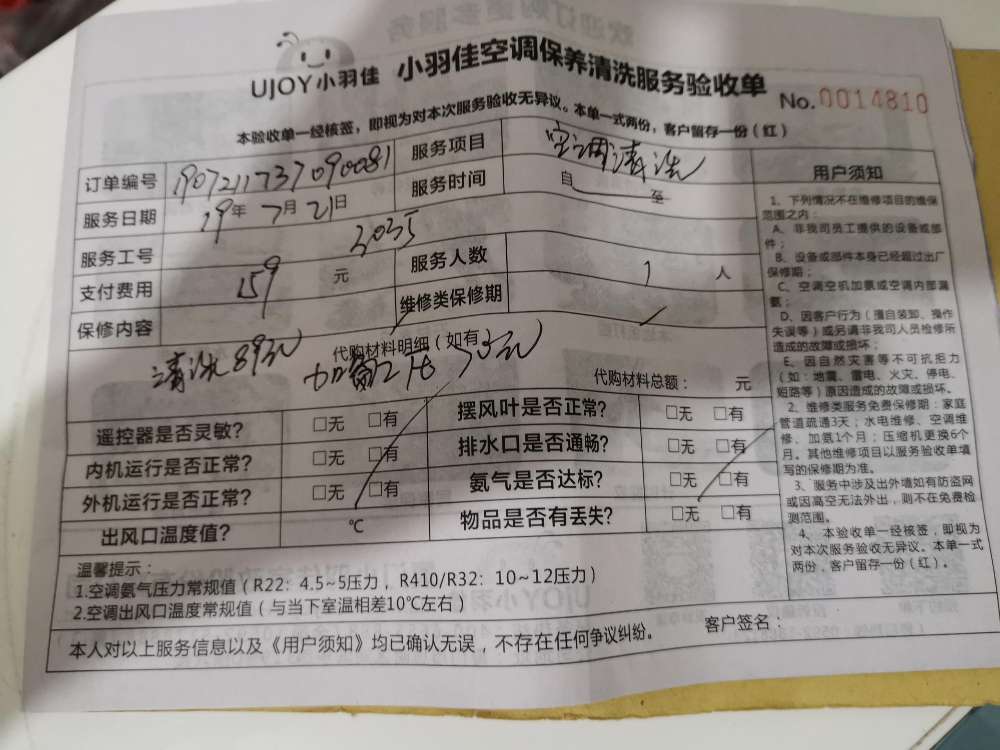 UJOY小羽佳 小羽佳空调保养清洗服务验收单
No.0014810
本验收单一经核签，即视为对本次服务验收无异议。本单一式两份，客户留存一份（红）
订单编号 1907211737090081 服务项目 空调清洗
服务日期 19年 7月 21日 服务时间 自 至
服务工号 服务人数 1 人
支付费用 159 元 维修类保修期
保修内容
代购材料明细（如有
清洗89元
代购材料总额： 元
遥控器是否灵敏? □无 □有 摆风叶是否正常? □无 □有
内机运行是否正常? □无 □有 排水口是否通畅? □无 □有
外机运行是否正常? □无 □有 氨气是否达标? □无 □有
出风口温度值? ℃ 物品是否有丢失? □无 □有
温馨提示：
1.空调氨气压力常规值（R22：4.5~5压力，R410/R32：10~12压力）
2.空调出风口温度常规值（与当下室温相差10℃左右）
本人对以上服务信息以及《用户须知》均已确认无误，不存在任何争议纠纷。 客户签名：
用户须知
1、下列情况不在维修项目的维保
范围之内：
A、非我司员工提供的设备或部
件；
B、设备或部件本身已经超过出厂
保修期；
C、空调空机加氨或空调内部漏
氨；
D、因客户行为（擅自装卸、操作
失误等）或另请非我司人员检修所
造成的故障或损坏；
E、因自然灾害等不可抗拒力
（如：地震、雷电、火灾、停电、
短路等）原因造成的故障或损坏。
2、维修类服务免费保修期：家庭
管道疏通3天；水电维修、空调维
修、加氨1个月；压缩机更换6个
月。其他维修项目以服务验收单填
写的保修期为准。
3、服务中涉及出外墙如有防盗网
或因高空无法外出，则不在免费检
测范围。
4、本验收单一经核签，即视为
对本次服务验收无异议。本单一式
两份，客户留存一份（红）。